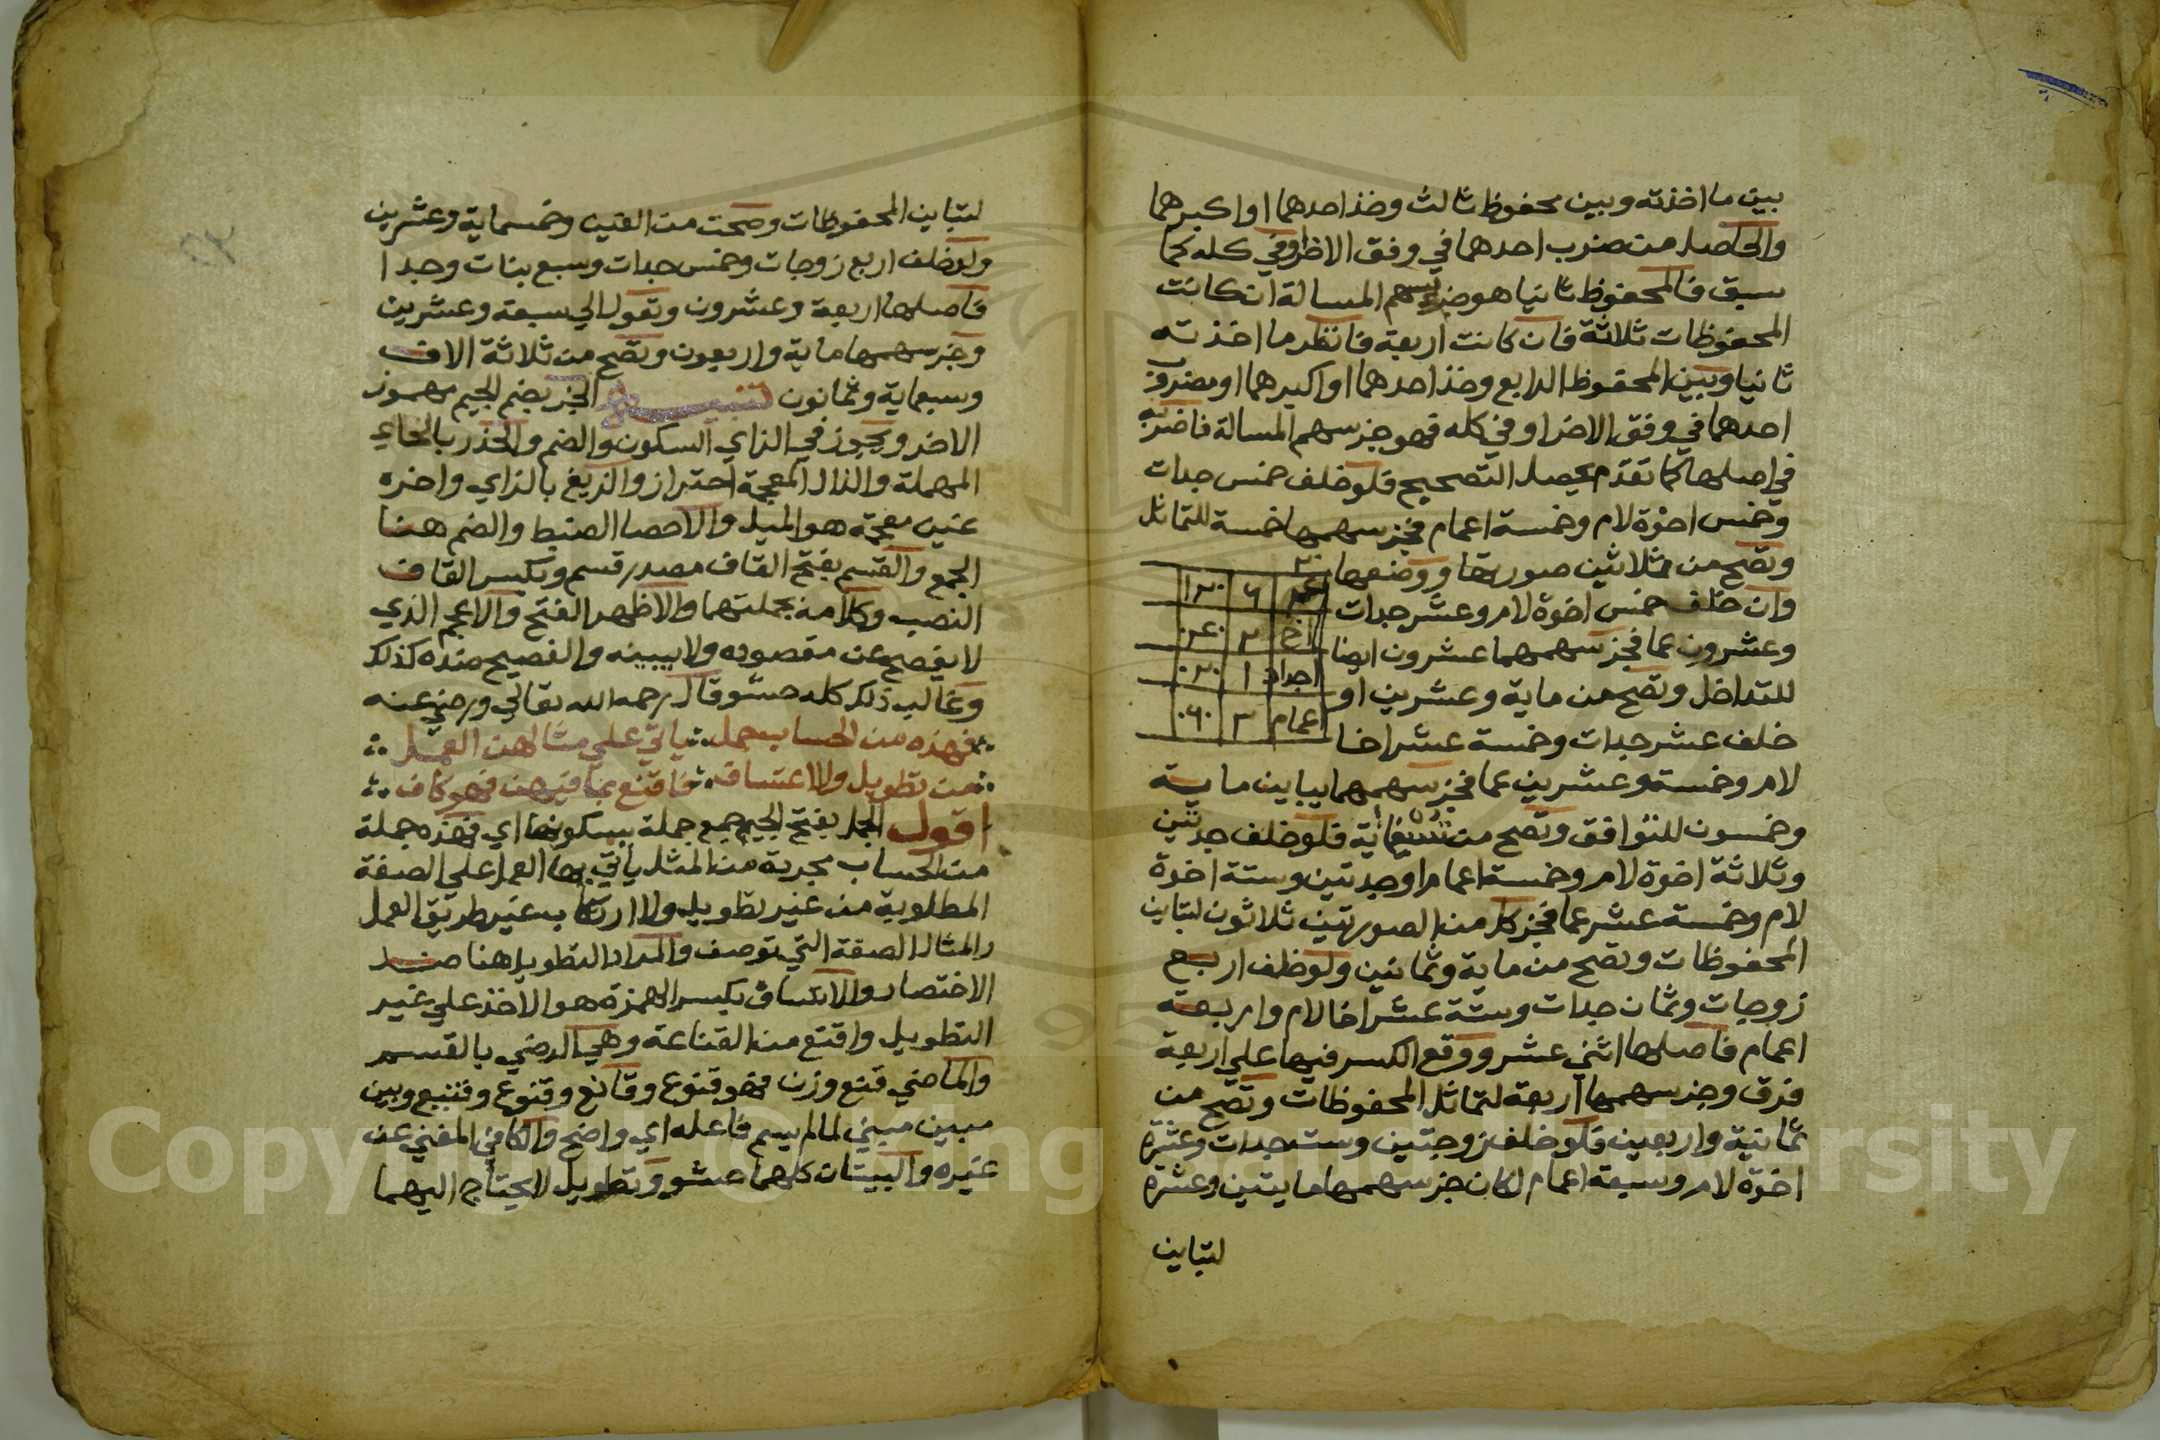 بين ما اخذته وبين محفوظ ثالث وخذ احدهما او اكبرهما
والحاصل من ضرب احدهما في وفق الاخر او في كله كما
سبق فالمحفوظ ثانيا هو جزء سهم المسالة ان كانت
المحفوظات ثلاثة فان كانت اربعة فانظر ما اخذته
ثانيا وبين المحفوظ الرابع وخذ احدهما او اكبرهما او مضروب
احدهما في وفق الاخر او في كله فهو جز سهم المسالة فاضربه
في اصلها كما تقدم يحصل التصحيح فلو خلف خمس جدات
وخمس اخوة لام وخمسة اعمام فجز سهمها خمسة للتماثل
وتصح من ثلاثين صورتها ووضعها
وان خلف خمس اخوة لام وعشر جدات
وعشرون عما فجز سهمهما عشرون ايضا
للتداخل وتصح من ماية وعشرين او
خلف عشر جدات وخمسة عشر اخا
٦
اخ ٢
اجداد ١
اعمام ٣
لام وخمسة وعشرين عما فجز سهمهما يباين ماية
وخمسون للتوافق وتصح من فلو خلف جدتين
وثلاثة اخوة لام وخمسة اعمام او جدتين وستة اخوة
لام وخمسة عشر عما فجز كل من الصورتين ثلاثون لتباين
المحفوظات وتصح من ماية وثمانين ولو خلف اربع
زوجات وثمان جدات وستة عشر اخا لام واربعة
اعمام فاصلها اثني عشر ووقع الكسر فيها علي اربعة
فرق وجز سهمها اربعة لتماثل المحفوظات وتصح من
ثمانية واربعين فلو خلف زوجتين وست جدات وعشرة
اخوة لام وسبعة اعمام لكان جز سهمها مايتين وعشرة
لتباين
لتباين المحفوظات وصحت من الفين وخمسماية وعشرين
ولو خلف اربع زوجات وخمس جدات وسبع بنات وجدا
فاصلها اربعة وعشرون وتعول الي سبعة وعشرين
وجز سهمها ماية واربعون وتصح من ثلاثة الاف
وسبعماية وثمانون تنبيه الجز بضم الجيم مهموز
الاخر ويجوز في الزاي السكون والضم والحذر بالحاء
المهملة والذال المعجمة احتراز والزيغ بالزاي واخره
غين معجمة هو الميل والاحصا الضبط والضم هنا
الجمع والقسم بفتح القاف مصدر قسم وبكسر القاف
النصيب وكلا منه بجملتهما والاظهر الفتح والاعجم الذي
لا يفصح عن مقصوده ولا يبينه والفصيح ضده كذلك
وغالب ذلك كله حشو قال رحمه الله تعالي ورضي عنه
فهذه من الحساب جمل ياتي علي مثالهن العمل
من تطويل ولا اعتساف فاقنع بما فيهن فهو كاف
اقول الجمل بفتح الجيم جمع جملة بسكونها اي فهذه جملة
من الحساب مجربة من المثل ياتي بها العمل علي الصفة
المطلوبة من غير تطويل ولا ارتكاب غير طريق العمل
والمثال الصفة التي توصف والمراد التطويل هنا ضد
الاختصار والاعتساف بكسر الهمزة هو الاخذ علي غير
التطويل واقنع من القناعة وهي الرضي بالقسم
والماضي قنع وزن فهو قنوع وقانع وقنوع وقنيع وبين
مبين مبني لما لم يسم فاعله اي واضح والكافي المغني عن
غيره والبيتان كلهما حشو وتطويل لا يحتاج اليهما